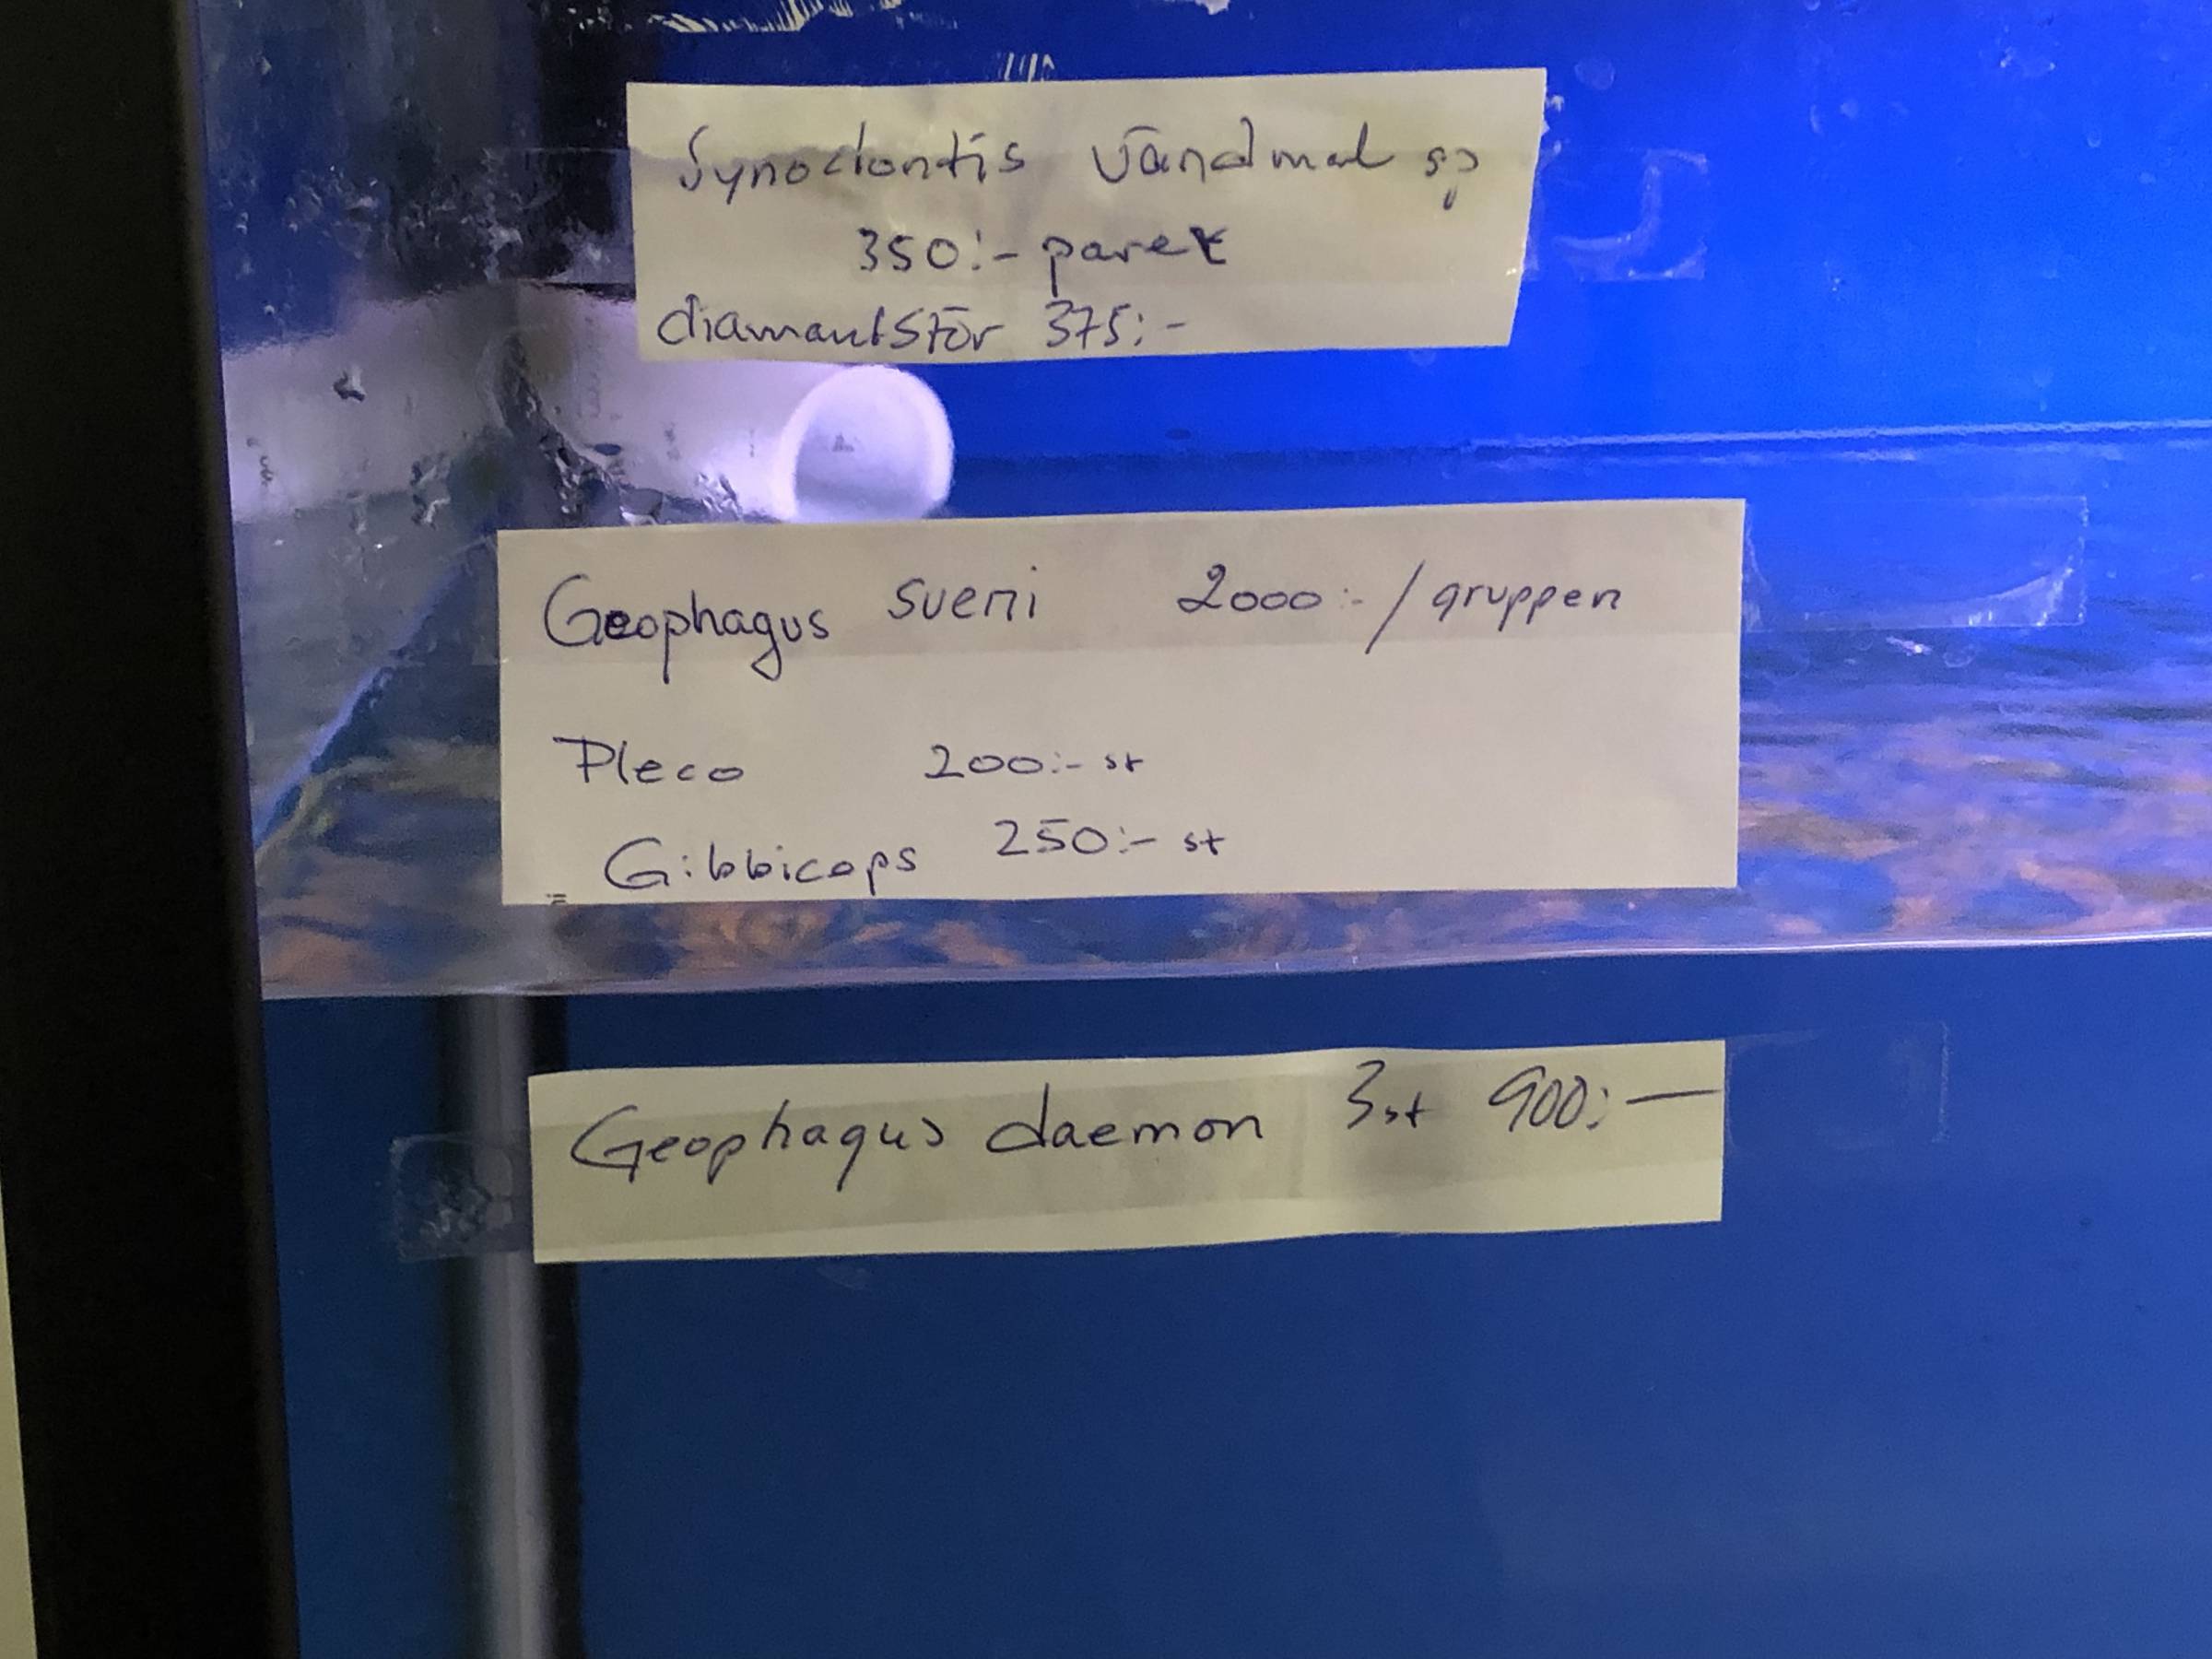 Synodontis vändmal sp
350:- paret
diamantstör 375:-
Geophagus sveni 2000:- / gruppen
Pleco 200:- st
Gibbiceps 250:- st
Geophagus daemon 3st 900:-